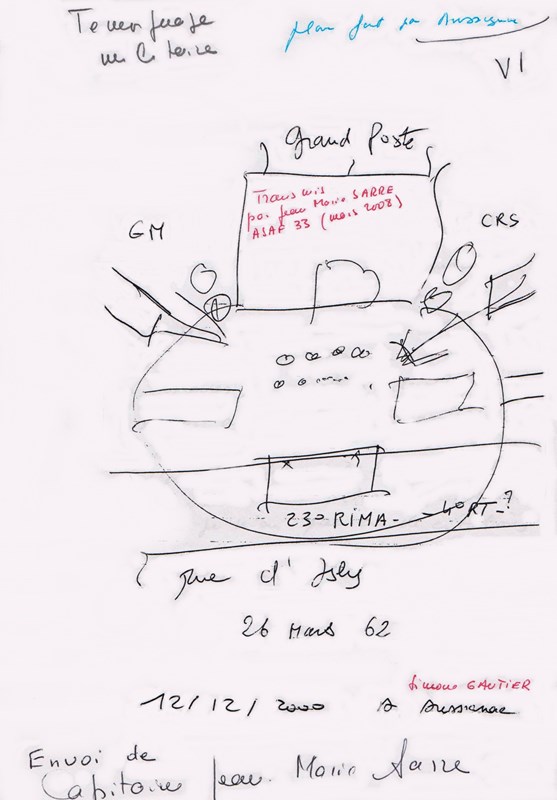 Temoignage
militaire
plan fait par Aussignac
VI
Grand Poste
Transmis
par Jean Marie SARRE
ASAF 33 (mars 2008)
GM
CRS
23° RIMA - 4° RT - ?
Rue d'Isly
26 Mars 62
Simone GAUTIER
12/12/2000 A Aussignac
Envoi de
Capitaine Jean Marie Sarre